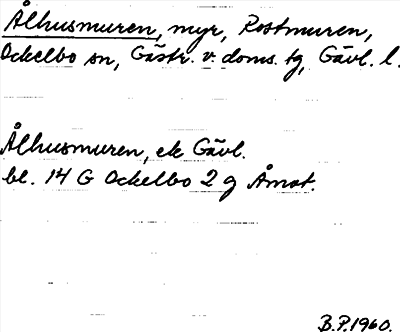 Ålhusmuren, myr, Rostmuren,
Ockelbo sn, Gästr. v. doms. tg, Gävl. l.
Ålhusmuren, ek Gävl.
bl. 14 G Ockelbo 2 g Åmot.
B.P. 1960.